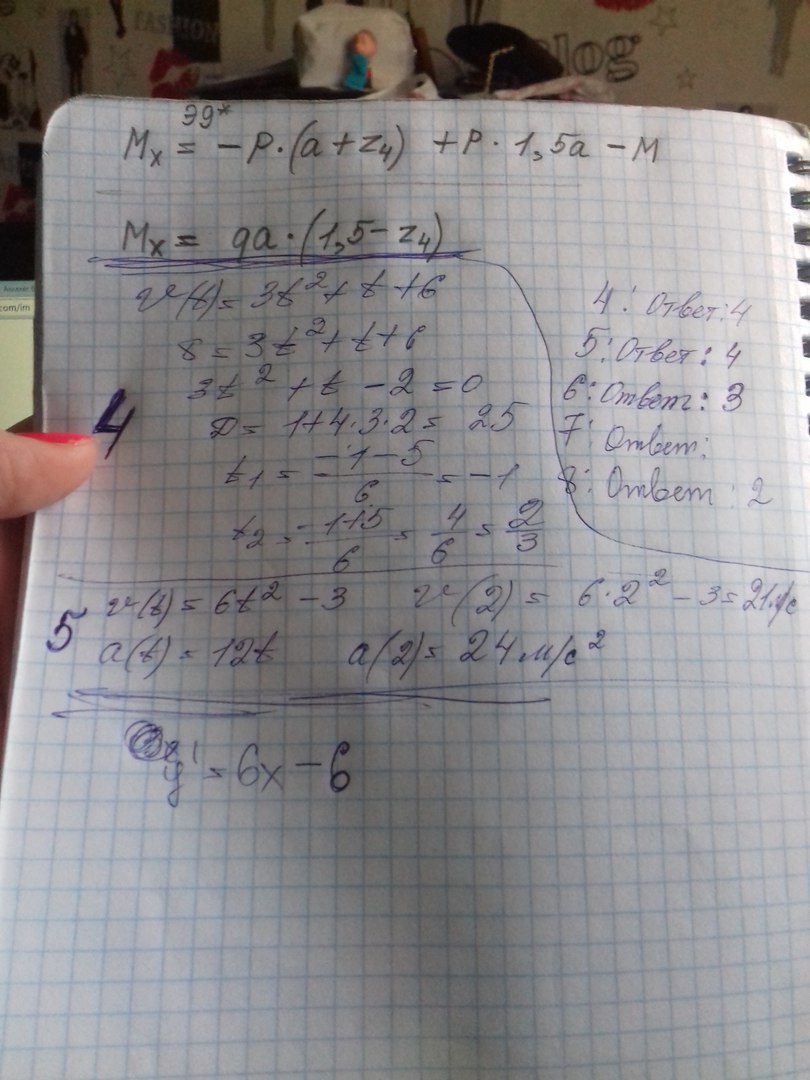 FASHION
Blog
эд*
Mx = -P·(a+z₄) +P· 1,5a -M
Mx = qa·(1,5-z₄)
v(t)= 3t²+t+6
8=3t²+t+6
3t²+t-2=0
4
D= 1+4·3·2= 25
t₁ = (-1-5)/6 = -1
t₂ = (-1+5)/6 = 4/6 = 2/3
4: Ответ: 4
5: Ответ: 4
6: Ответ: 3
7: Ответ:
8: Ответ: 2
5
v(t)= 6t²-3 v(2)= 6·2²-3=21м/с
a(t)=12t a(2)= 24м/с²
y'=6x-6
com/im